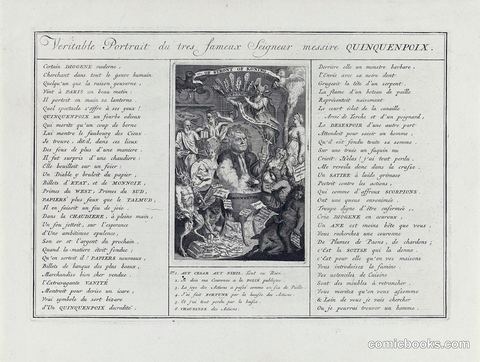 Veritable Portrait du tres fameux Seigneur messire QUINQUENPOIX.
Certain DIOGENE moderne,
Cherchant dans tout le genre humain
Quelqu'un que la raison gouverne,
Vint à PARIS un beau matin;
Il portoit en main sa lanterne,
Quel spectacle s'offre à ses yeux!
QUINQUENPOIX un fourbe odieux
Qui merite qu'un coup de berne
Lui montre le faubourg des Cieux.
Je trouve, dit-il, dans ces lieux
Des fous de plus d'une maniere;
Il fut surpris d'une chaudiere;
Elle bouilloit sur un foier;
Un Diable y bruloit du papier,
Billets d'ETAT, et de MONNOIE,
Primes du WEST, Primes du SUD,
PAPIERS plus faux que le TALMUD,
Il en faisoit un feu de joie
Dans la CHAUDIERE, à pleine main,
Un fou jettoit, sur l'esperance
D'une ambitieuse opulence,
Son or et l'argent du prochain.
Quand la matiere étoit fondue;
Qu'en sortoit il? PAPIERS nouveaux,
Billets de banque des plus beaux,
Marchandise bien cher vendue;
l'Extravagante VANITÉ
Montroit pour devise un icare,
Vrai symbole du sort bizare
D'Un QUINQUENPOIX decredité.
Derriere elle un monstre barbare,
l'Envie avec sa noire dent
Grugeoit la tête d'un serpent
La flame d'un boteau de paille
Representoit naivement
Le court éclat de la canaille
Armé de Torche et d'un poignard,
Le DESESPOIR d'une autre part
Attendoit pour saisir un homme,
Qu'il eût fondu toute sa somme.
Sur une truie un faquin nu
Crioit: Helas! j'ai tout perdu,
Me revoila donc dans la crasse.
Un SATIRE à laide grimace
Portoit contre les actions,
Qui comme d'affreux SCORPIONS
Ont une queue envenimée
Troupe digne d'être enfermée,
Cria DIOGENE en couroux,
Un ANE est moins bête que vous;
Vous recherchez une couronne
De Plumes de Paons, de chardons;
c'est la SOTTISE qui la donne
c'est Pour elle qu'en vos maisons
Vous introduisez la famine
Vos ustenciles de Cuisine
Sont des meubles à retrancher,
Vous meritez qu'on vous assomme
& Loin de vous je vais chercher
Où je pourrai trouver un homme.
1. AUT CESAR AUT NIHIL. Tout ou Rien.
4. J'ai fait FORTUNE par la hausse des Actions
5. et j'ai tout perdu par la baisse.
comicbooks.com
© comicbooks.com